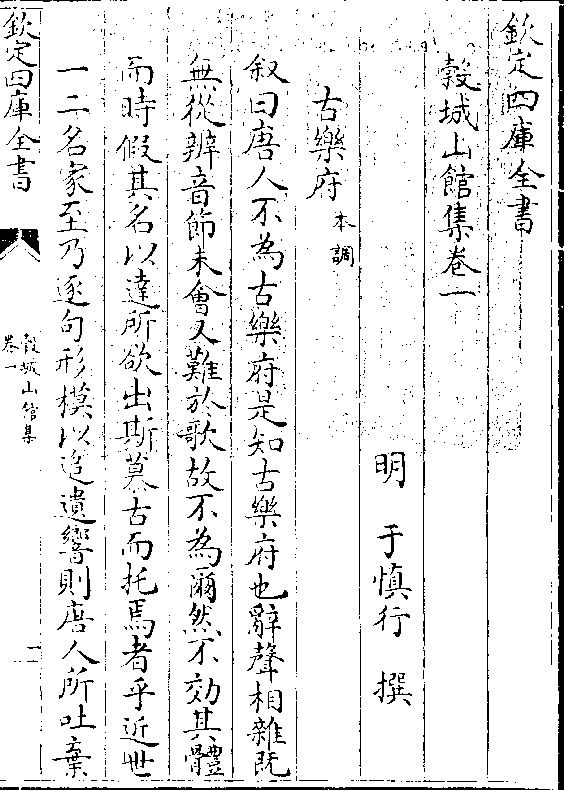 欽定四庫全書
穀城山館集卷一
明 于慎行 撰
古樂府 本調
叙曰唐人不為古樂府是知古樂府也辭聲相雜既
無從辨音節未會又難於歌故不為爾然不効其體
而時假其名以達所欲出斯慕古而托焉者乎近世
一二名家至乃逐句形模以追遺響則唐人所吐棄
欽定四庫全書
穀城山館集
卷一
一